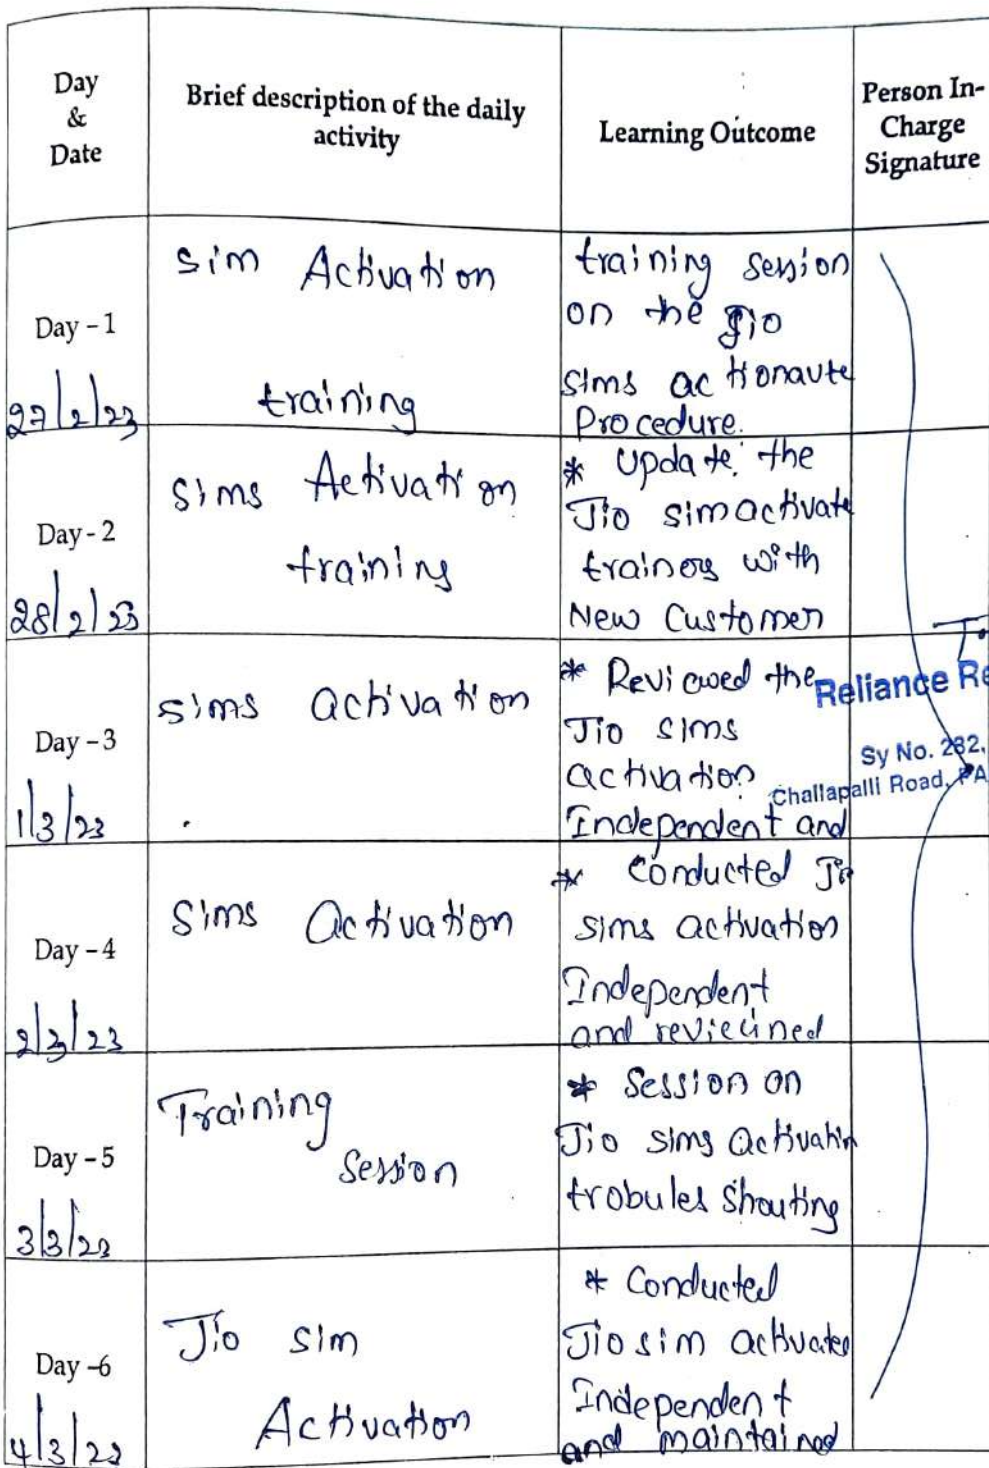 Day
&
Date
Brief description of the daily
activity
Learning Outcome
Person In-
Charge
Signature
Day - 1
27/2/23
sim Activation
training
training session
on the Jio
sims ac
Procedure.
Day - 2
28/2/23
sims Activation
training
* Update the
Jio sim activate
with
New Customer
Day - 3
1/3/23
sims activation
* Reviewed the
Jio sims
activation
Independent and
Reliance Re
Sy No. 282,
Challapalli Road, PA
Day - 4
2/3/23
Sims Activation
* Conducted Jio
sims activation
Independent
and
Day - 5
3/3/23
Training
Session
* Session on
Jio sims Activatin
trobules Shouting
Day - 6
4/3/23
Jio sim
Activation
* Conducted
Jio sim activated
Independent
and maintained